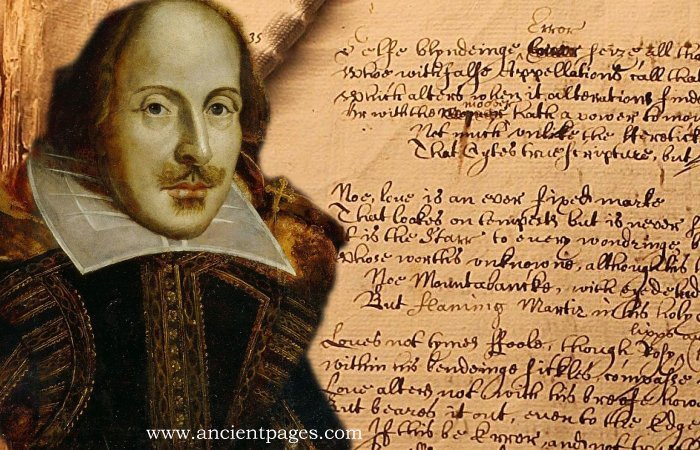 35
Error
selfe blyndeinge seize all tho
Whoe with false Appellations call tha
Which alters when it alterations finde
Or with the mover hath a power to mov
Not much unlike the Heretick
That Cytes true scripture, but
Noe, love is an ever fixed marke
That lookes on tempests but is never
It is the Starr to every wondringe
Whose worths unknowne, although his
Noe Mountabancke, with eye
But flaming Martir in his holy
lipps
Loves not tymes Foole, though Rosy
within his bendeinge sickles compasse
Love alters not with his breefe howe
But beares it out, even to the Edge
If this be Error, and not
www.ancientpages.com